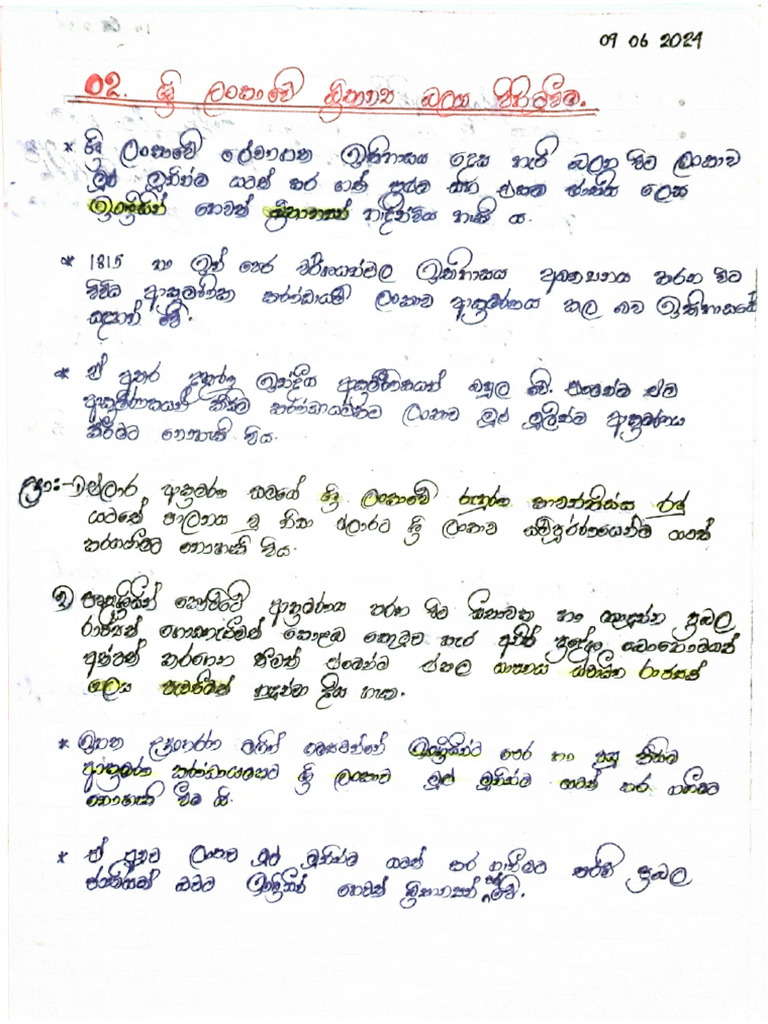 09 06 2024
02. ශ්‍රී ලංකාවේ බ්‍රිතාන්‍ය බලය පිහිටුවීම.
* ශ්‍රී ලංකාවේ ලේඛනගත ඉතිහාසය දෙස හැරී බලන විට ලංකාව
මුළු මුනින්ම යටත් කර ගත් ප්‍රථම සහ එකම ජාතිය ලෙස
ඉංග්‍රීසීන් හෙවත් බ්‍රිතාන්‍යන් හැඳින්විය හැකි ය.
* 1815 හා ඉන් පෙර වර්ෂයන්වල ඉතිහාසය අධ්‍යයනය කරන විට
විවිධ ආක්‍රමණික කණ්ඩායම් ලංකාව ආක්‍රමණය කල බව ඉතිහාසයේ
සඳහන් වේ.
* ඒ අතර දකුණු ඉන්දීය ආක්‍රමණිකයන් බහුල වේ. එමෙන්ම එම
ආක්‍රමණිකයන් කිසිම කණ්ඩායමකටම ලංකාව මුළු මුනින්ම ආක්‍රමණය
කිරීමට නොහැකි විය.
උදා:- එළාර ආක්‍රමණ සමයේ ශ්‍රී ලංකාවේ රුහුණ කාවන්තිස්ස රජු
යටතේ පාලනය වූ නිසා එලාරට ශ්‍රී ලංකාව සම්පූර්ණයෙන්ම යටත්
කරගැනීමට නොහැකි විය.
පෘතුග්‍රීසීන් කෝට්ටේ ආක්‍රමණය කරන විට සීතාවක හා යාපනය ප්‍රබල
රාජ්‍යත් ගොඩනැගීමත් කොළඹ කොටුව හැර අනිත් ප්‍රදේශ බොහොමයක්
අත්පත් කරගෙන තිබීමත් එමෙන්ම එකල යාපනය ස්වාධීන රාජ්‍යයක්
ලෙස පැවතීමත් හඳුන්වා දිය හැක.
* ඉහත උදාහරණ මගින් ගම්‍යවන්නේ ඉංග්‍රීසීන්ට පෙර හා පසු කිසිම
ආක්‍රමණ කණ්ඩායමකට ශ්‍රී ලංකාව මුළු මුනින්ම යටත් කර ගැනීමට
නොහැකි වීම යි.
* ඒ අනුව ලංකාව මුළු මුනින්ම යටත් කර ගැනීමට තරම් ප්‍රබල
ජාතියක් බවට ඉංග්‍රීසීන් හෙවත් බ්‍රිතාන්‍යන් පත් වේ.